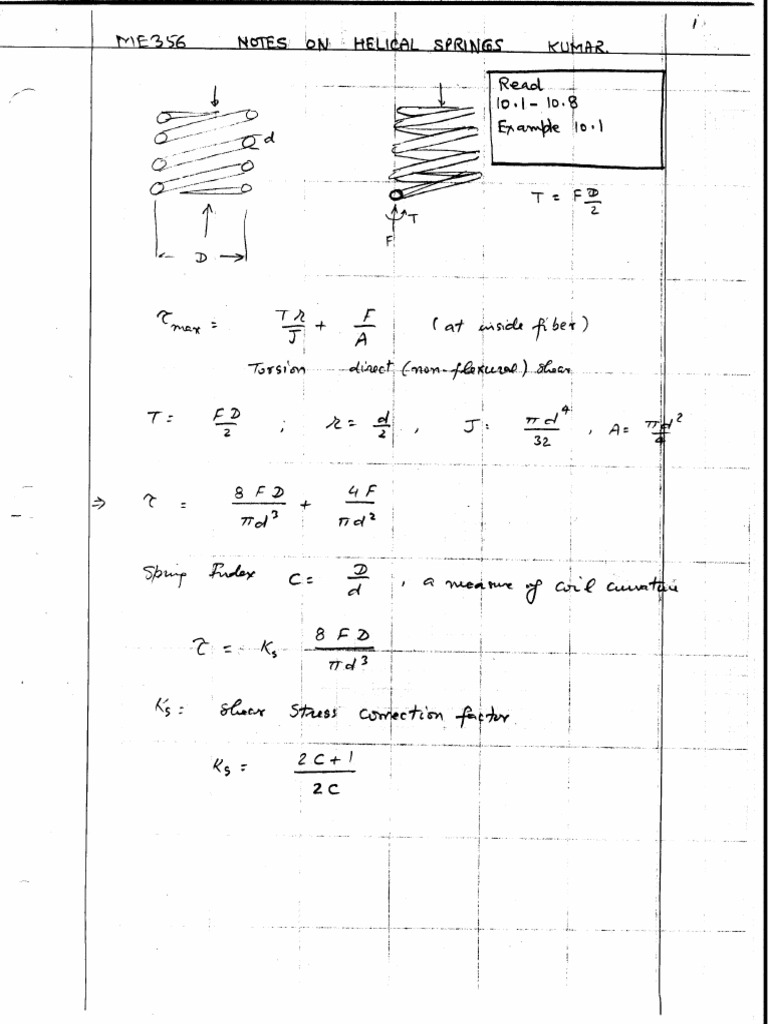 1.
ME356 NOTES ON HELICAL SPRINGS KUMAR.
Read
10.1 - 10.8
Example 10.1
d
T = F D/2
T
F
D
τmax = Tr/J + F/A (at inside fiber)
Torsion direct (non-flexural) shear
T = FD/2 ; r = d/2 , J = πd⁴/32 , A = πd²/4
⇒ τ = 8FD/πd³ + 4F/πd²
Spring Index C = D/d , a measure of coil curvature
τ = Ks 8FD/πd³
Ks = Shear Stress correction factor
Ks = 2C+1/2C